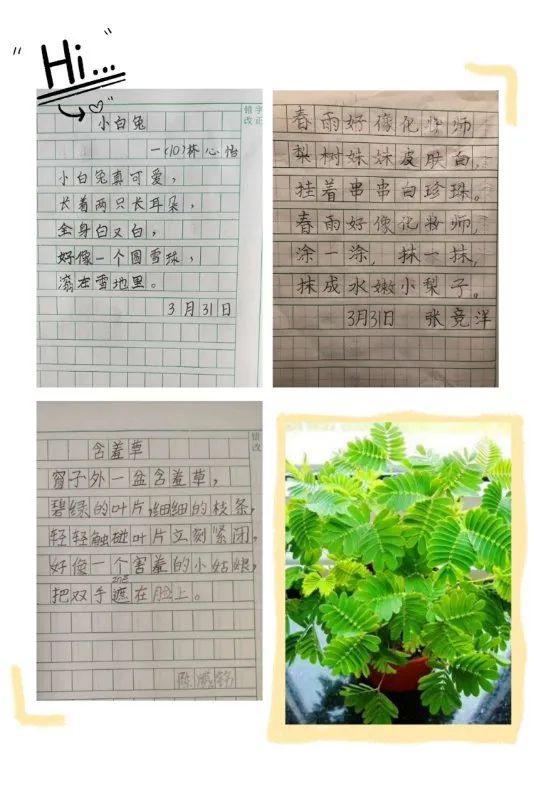 Hi...
错字
改正
小白兔
一(10)林心怡
小白兔真可爱,
长着两只长耳朵,
全身白又白,
好像一个圆雪球,
滚在雪地里。
3月31日
春雨好像化妆师
梨树妹妹皮肤白,
挂着串串白珍珠。
春雨好像化妆师,
涂一涂,抹一抹,
抹成水嫩小梨子。
3月31日 张竞洋
错
改
含羞草
窗子外一盆含羞草,
碧绿的叶片,细细的枝条,
轻轻触碰叶片立刻紧闭,
好像一个害羞的小姑娘,
zhē
把双手遮在脸上。